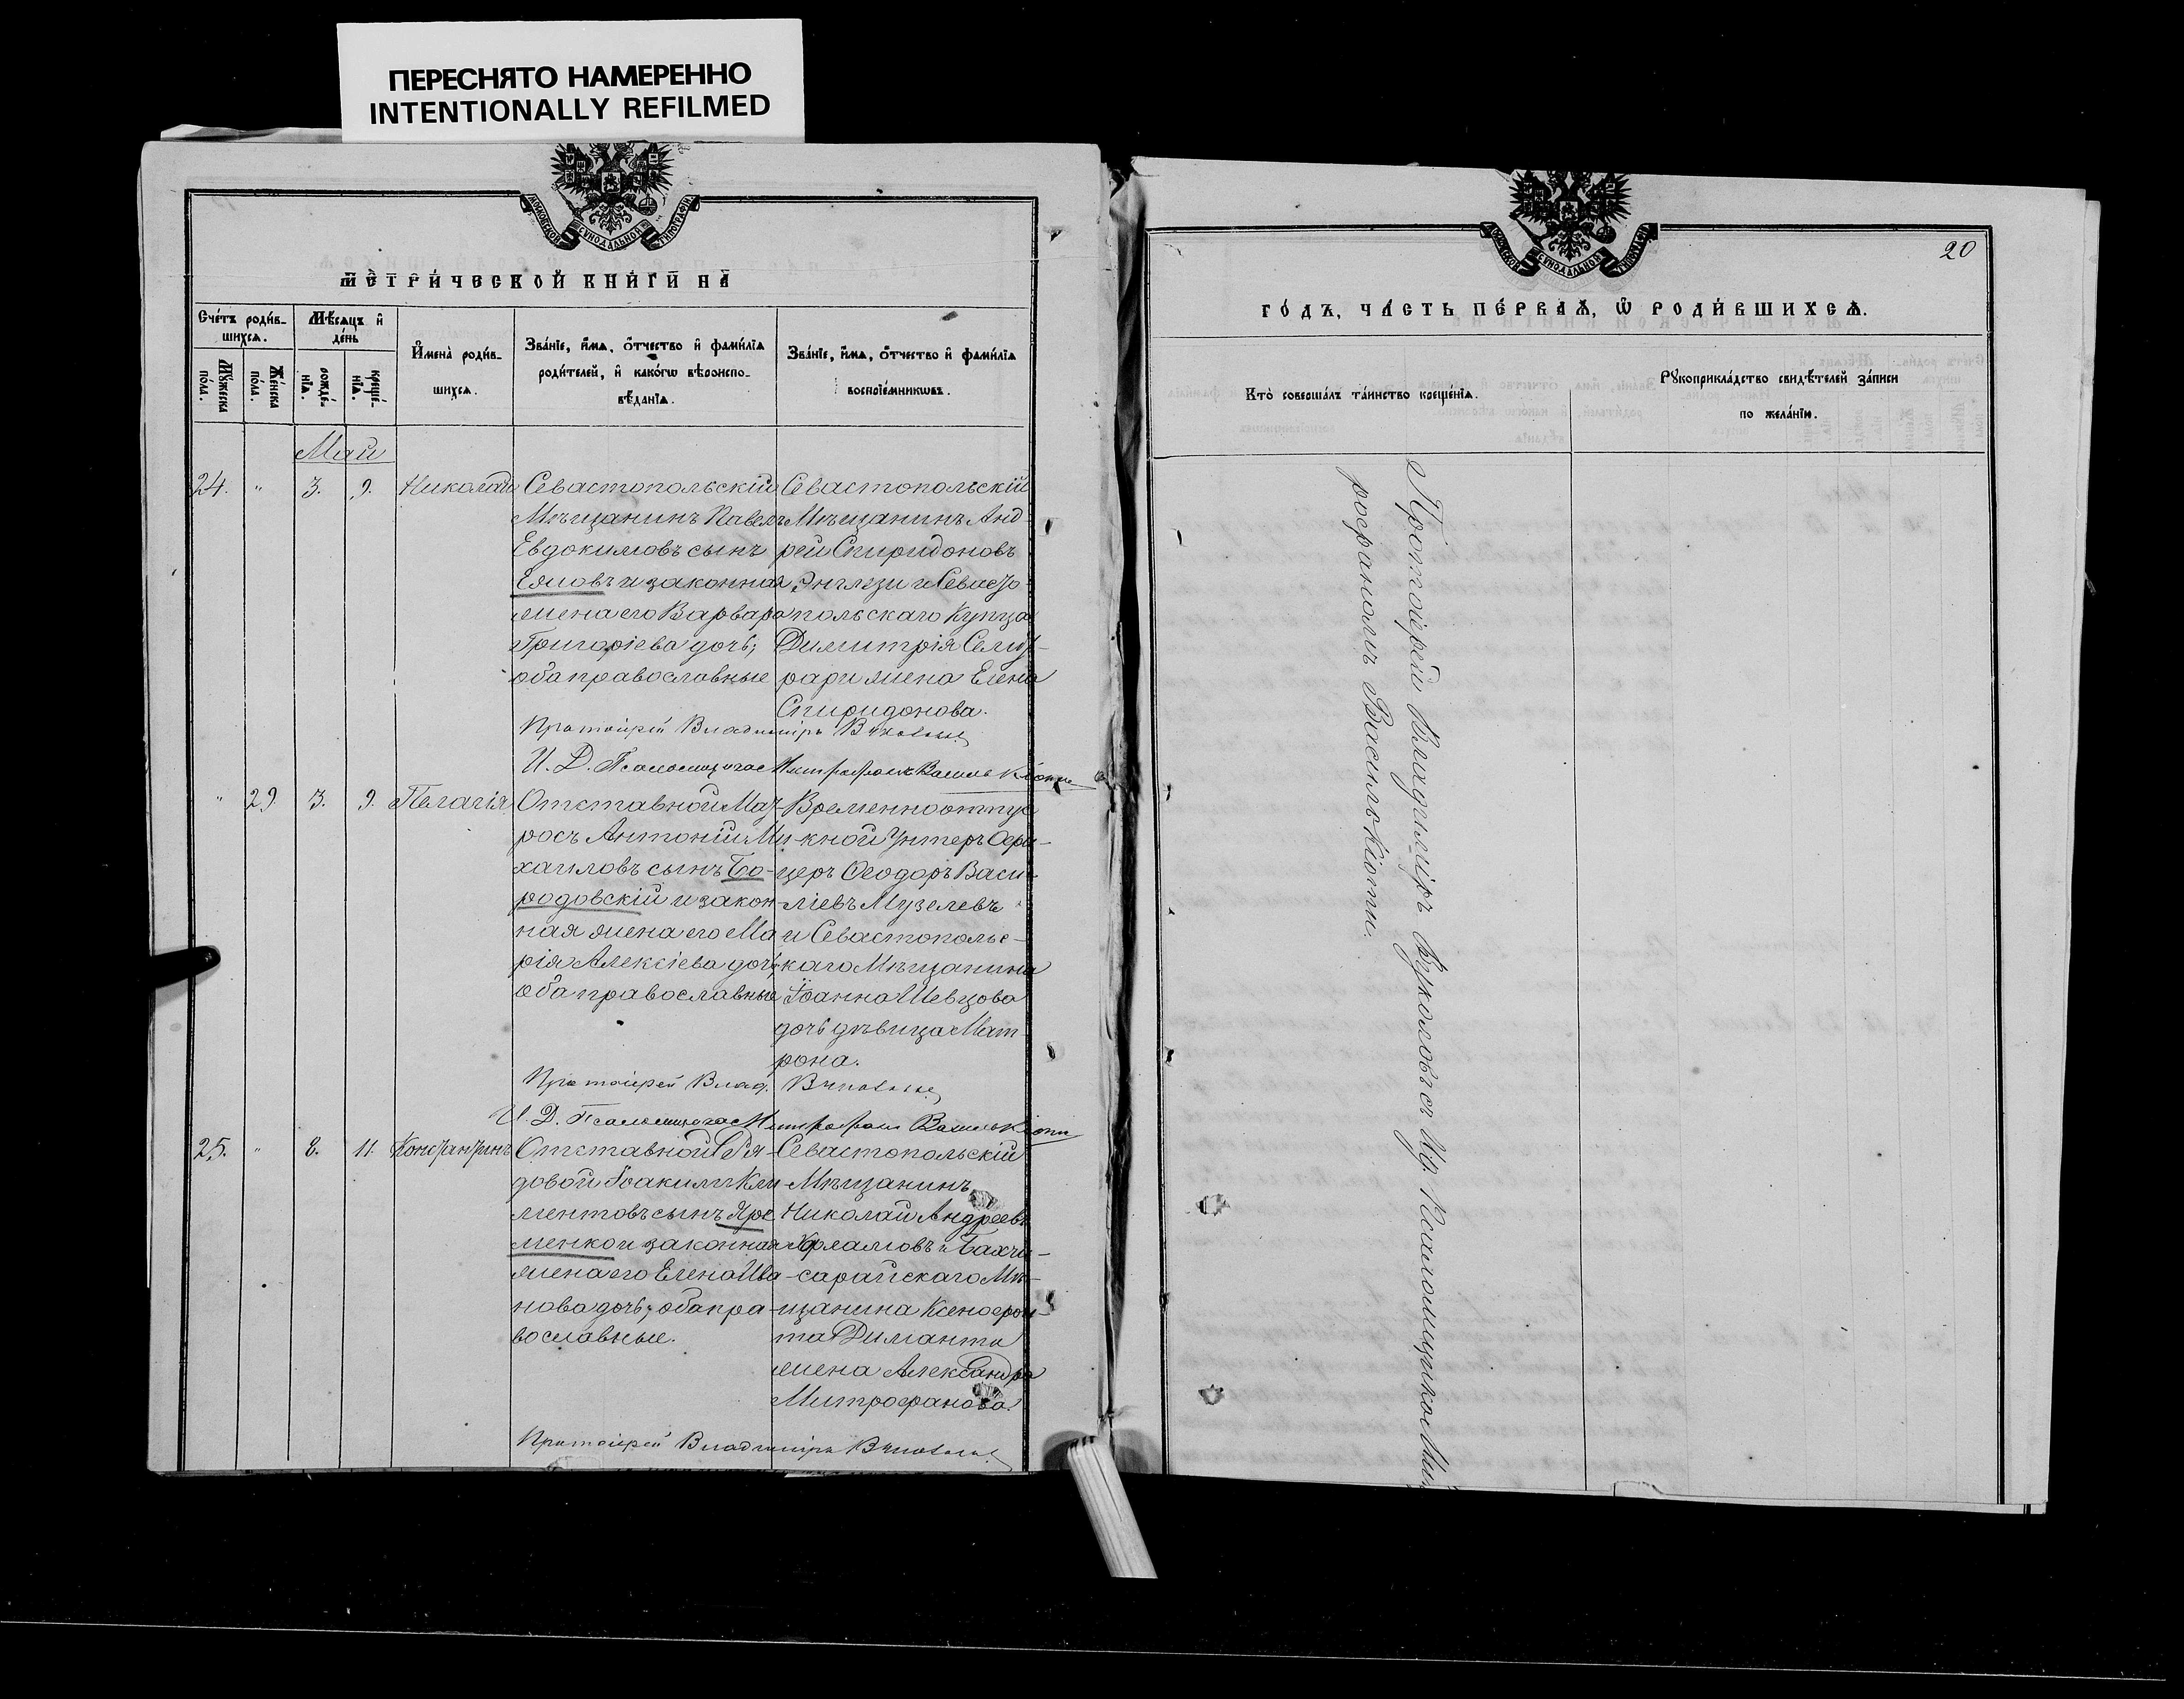 ПЕРЕСНЯТО НАМЕРЕННО
INTENTIONALLY REFILMED
МОСКОВСКОЙ СѴНОДАЛЬНОЙ ТИПОГРАФІИ
МЕТРИЧЕСКОЙ КНИГИ НА
Счетъ родив-
шихся.
Мѣсяцъ и
день
Имена родив-
шихся.
Званіе, имя, отчество и фамилія
родителей, и какогѡ вѣроиспо-
вѣданія.
Званіе, имя, отчество и фамилія
воспріемникѡвъ.
Мужеска
пола.
Женска
пола.
рожде-
нія.
креще-
нія.
Май
24. " 3. 9. Николай
Севастопольскій
Мѣщанинъ Павелъ
Евдокимовъ сынъ
Еямовъ и законная
жена его Варвара
Григоріева дочь;
оба православные
Севастопольскій
Мѣщанинъ Анд-
рей Спиридоновъ
и Севасто-
польскаго Купца
Димитрія
жена Елена
Спиридонова.
Протоіерей Владиміръ
И. Д. Псаломщика Митрофанъ Василькіоти
" 29. 3. 9. Пелагія
Отставной Мат-
росъ Антоній Ми-
хаиловъ сынъ Бо-
родовскій и закон-
ная жена его Ма-
рія Алексіева дочь;
оба православные
Временноотпус-
кной Унтеръ Офи-
церъ Ѳеодоръ Васи-
ліевъ Музелевъ
и Севастопольс-
каго Мѣщанина
Іоанна Шевцова
дочь дѣвица Мат-
рона.
Протоіерей Влад.
И. Д. Псаломщика Митрофанъ Василькіоти
25. " 8. 11. Константинъ
Отставной Ря-
довой Іоакимъ Кли-
ментовъ сынъ Яре-
менко и законная
жена его Елена Ива-
нова дочь; оба пра-
вославные.
Севастопольскій
Мѣщанинъ
Николай Андреевъ
Харламовъ и Бахчи-
сарайскаго Мѣ-
щанина Ксенофон-
та Диманти
жена Александра
Митрофанова.
Протоіерей Владиміръ
МОСКОВСКОЙ СѴНОДАЛЬНОЙ ТИПОГРАФІИ
20
ГОДЪ, ЧАСТЬ ПЕРВАЯ, Ѡ РОДИВШИХСЯ.
Кто совершалъ таинство крещенія.
Рукоприкладство свидѣтелей записи
по желанію.
Протоіерей Владиміръ съ Псаломщикомъ Мит-
рофаномъ Василькіоти.